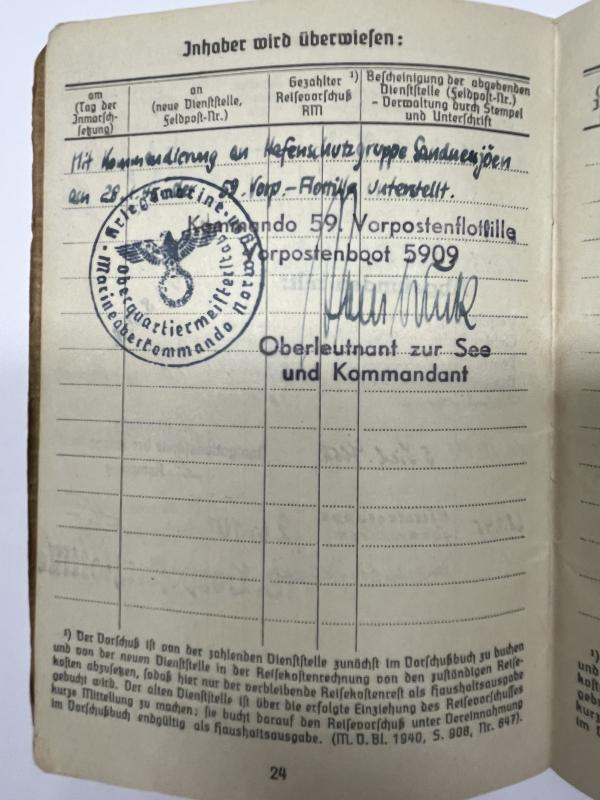 Inhaber wird überwiesen:
am
(Tag der
Inmarsch-
setzung)
an
(neue Dienststelle,
Feldpost-Nr.)
Gezahlter ¹)
Reisevorschuß
RM
Bescheinigung der abgehenden
Dienststelle (Feldpost-Nr.)
- Verwaltung durch Stempel
und Unterschrift
Mit Kommandierung an Hafenschutzgruppe Sandnessjöen
am 28. 59. Vorp.-Flottille unterstellt.
Kommando 59. Vorpostenflottille
Vorpostenboot 5909
Oberleutnant zur See
und Kommandant
Kriegsmarine
Marineoberkommando
oberquartiermeisterstab
¹) Der Vorschuß ist von der zahlenden Dienststelle zunächst im Vorschußbuch zu buchen
und von der neuen Dienststelle in der Reisekostenrechnung von den zuständigen Reise-
kosten abzusetzen, sodaß hier nur der verbleibende Reisekostenrest als Haushaltsausgabe
gebucht wird. Der alten Dienststelle ist über die erfolgte Einziehung des Reisevorschusses
kurze Mitteilung zu machen; sie bucht darauf den Reisevorschuß unter Vereinnahmung
im Vorschußbuch endgültig als Haushaltsausgabe. (M. D. Bl. 1940, S. 908, Nr. 847).
24